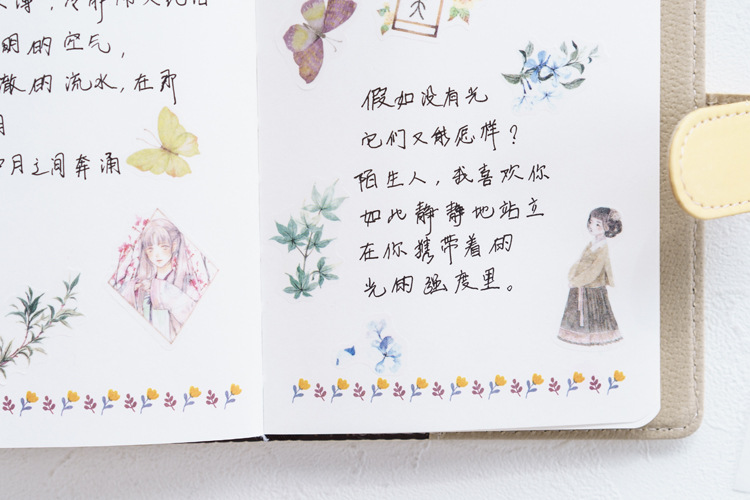 明的空气，
的流水，在那
月之间奔涌
假如没有光
它们又能怎样？
陌生人，我喜欢你
如此静静地站立
在你携带着的
光的强度里。